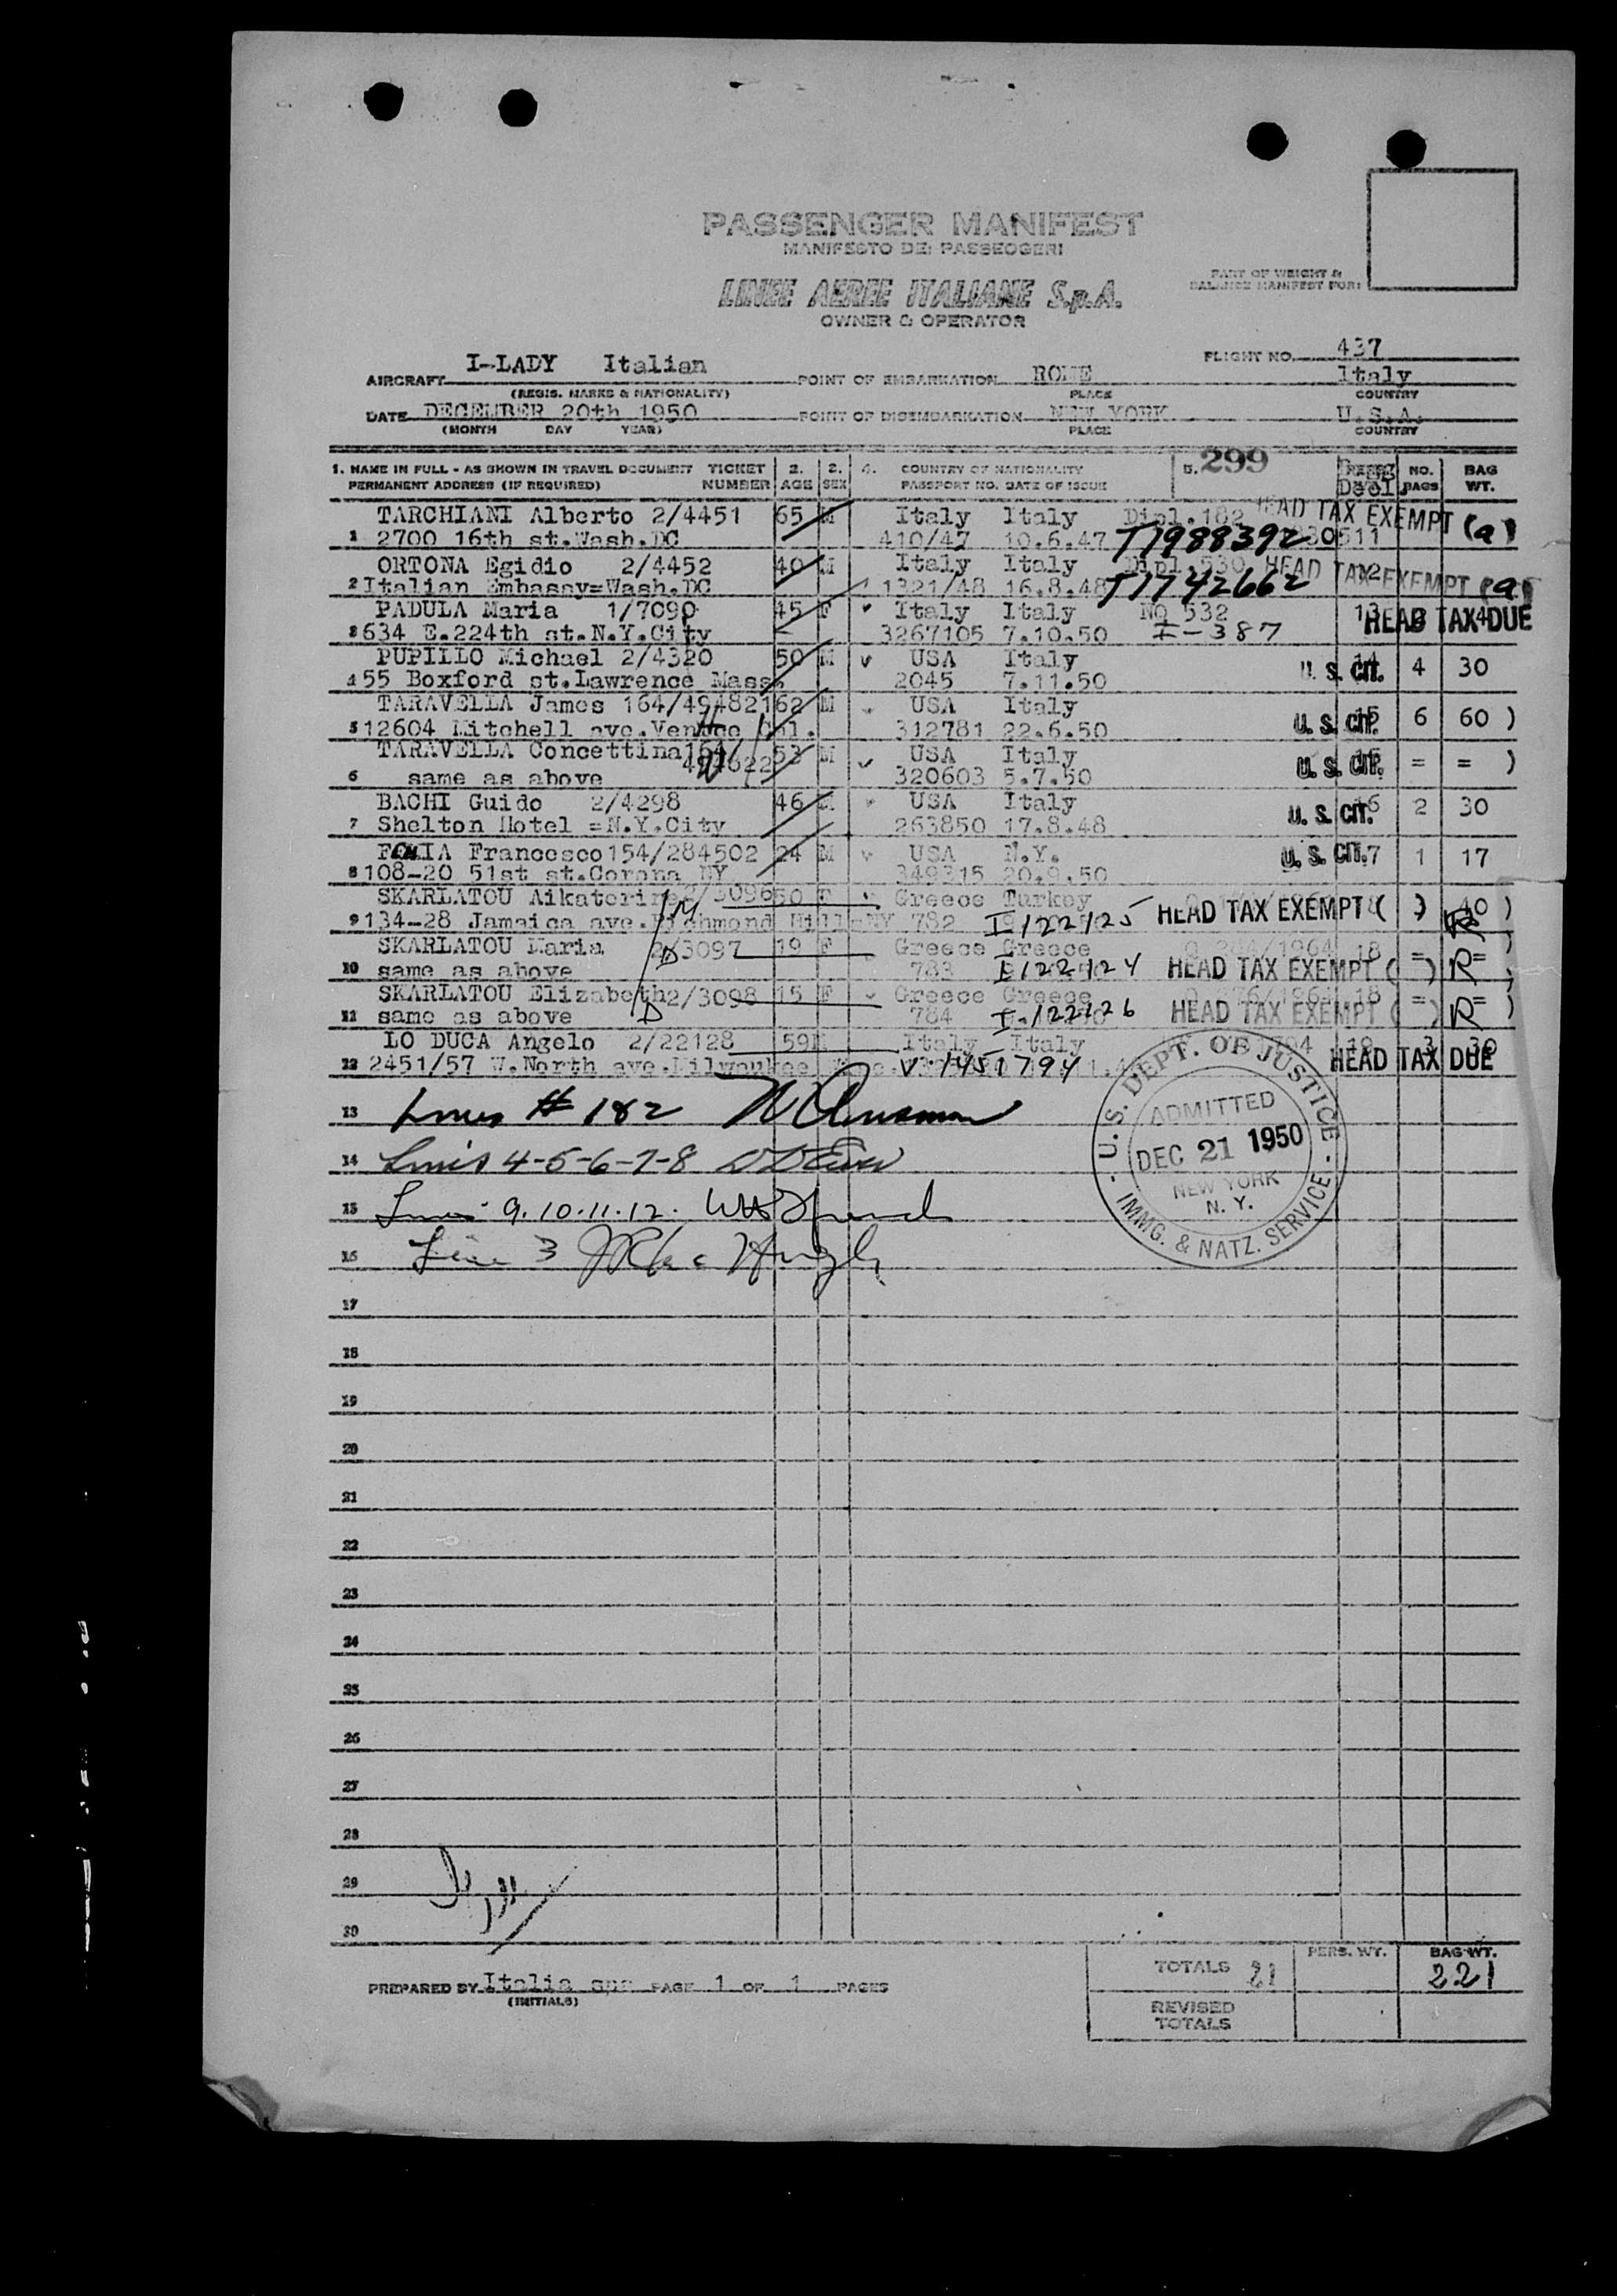 PASSENGER MANIFEST
MANIFESTO DEI PASSEGGERI
LINEE AEREE ITALIANE S.p.A.
OWNER & OPERATOR
PART OF WEIGHT &
BALANCE MANIFEST FOR:
FLIGHT NO. 437
AIRCRAFT I-LADY Italian POINT OF EMBARKATION ROME Italy
(REGIS. MARKS & NATIONALITY) PLACE COUNTRY
DATE DECEMBER 20th 1950 POINT OF DISEMBARKATION NEW YORK U.S.A.
(MONTH DAY YEAR) PLACE COUNTRY
1. NAME IN FULL - AS SHOWN IN TRAVEL DOCUMENT TICKET 2. 2. 4. COUNTRY OF NATIONALITY 5. 299 NO. BAG
PERMANENT ADDRESS (IF REQUIRED) NUMBER AGE SEX PASSPORT NO. DATE OF ISSUE Decl. PAGS WT.
TARCHIANI Alberto 2/4451 65 M Italy Italy Dipl.182 HEAD TAX EXEMPT (a)
1 2700 16th st.Wash.DC 410/47 10.6.47 T1988392 11
ORTONA Egidio 2/4452 40 M Italy Italy Dipl.530 HEAD TAX EXEMPT (a)
2 Italian Embassy=Wash.DC 1321/48 16.8.48 T1742662
PADULA Maria 1/7090 45 F Italy Italy NQ 532 13 HEAD TAX DUE
3 634 E.224th st.N.Y.City 3267105 7.10.50 I-387
PUPILLO Michael 2/4320 50 M USA Italy U. S. CIT. 4 30
4 55 Boxford st.Lawrence Mass. 2045 7.11.50
TARAVELLA James 164/494821 62 M USA Italy U. S. CIT. 6 60 )
5 12604 Mitchell ave.Venice Cal. 312781 22.6.50
TARAVELLA Concettina 164/ 53 M USA Italy U. S. CIT. = = )
6 same as above 494622 320603 5.7.50
BACHI Guido 2/4298 46 M USA Italy U. S. CIT. 2 30
7 Shelton Hotel =N.Y.City 263850 17.8.48
Francesco 154/284502 24 M USA N.Y. U. S. CIT. 17 1 17
8 108-20 51st st.Corona NY 349315 20.9.50
SKARLATOU Aikaterine 2/3096 50 F Greece Turkey HEAD TAX EXEMPT ( ) 40 )
9 134-28 Jamaica ave.Richmond Hill=NY 782 I-122125 R
SKARLATOU Maria 2/3097 19 F Greece Greece 18 = = )
10 same as above 783 I-122124 HEAD TAX EXEMPT ( ) R
SKARLATOU Elizabeth 2/3098 15 F Greece Greece 18 = = )
11 same as above 784 I-122126 HEAD TAX EXEMPT ( ) R
LO DUCA Angelo 2/22128 59 M Italy Italy 19 3 30
12 2451/57 W.North ave.Milwaukee V-1451794 HEAD TAX DUE
13 Lines # 182
14 Lines 4-5-6-7-8
15 Lines 9.10.11.12.
16 Line 3
U.S. DEPT. OF JUSTICE
ADMITTED
DEC 21 1950
NEW YORK
N. Y.
IMMG. & NATZ. SERVICE
17
18
19
20
21
22
23
24
25
26
27
28
29
30
TOTALS 21 PERS. WT. BAG WT. 221
PREPARED BY Italia spa PAGE 1 OF 1 PAGES
(INITIALS)
REVISED
TOTALS